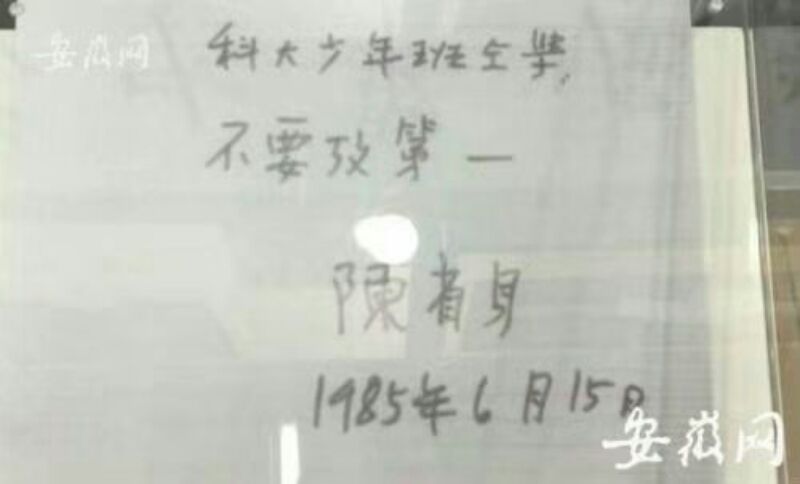 安徽网
科大少年班全學,
不要攷第一
陳省身
1985年6月15日
安徽网